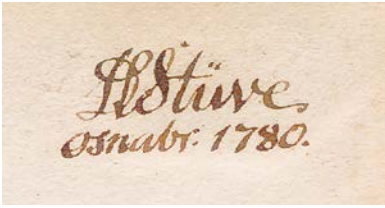 Stüve
osnabr. 1780.